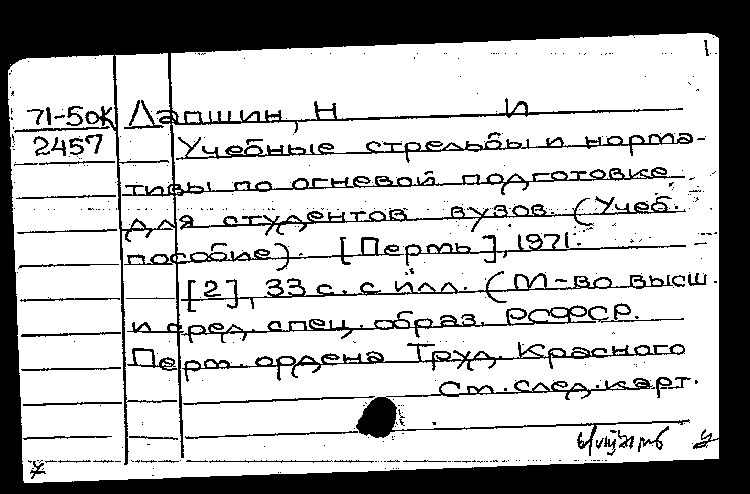 71-5ок Лапшин, Н И
2457 Учебные стрельбы и норма-
тивы по огневой подготовке
для студентов вузов. (Учеб.
пособие). [Пермь], 1971.
[2], 33 с. с илл. (М-во высш.
и сред. спец. образ. РСФСР.
Перм. ордена Труд. Красного
См. след. карт.